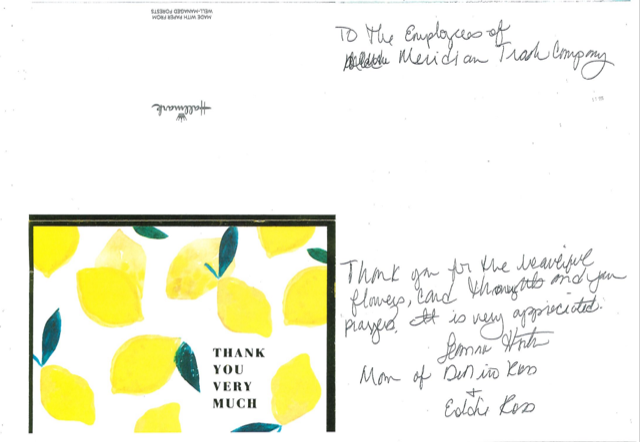 MADE WITH PAPER FROM
WELL-MANAGED FORESTS
Hallmark
To The Employees of
Meridian Trash Company
Thank you for the beautiful
flowers, card thoughts and you
prayers. It is very appreciated.
Mom of DeNiro Ross
+
Eddie Ross
THANK
YOU
VERY
MUCH